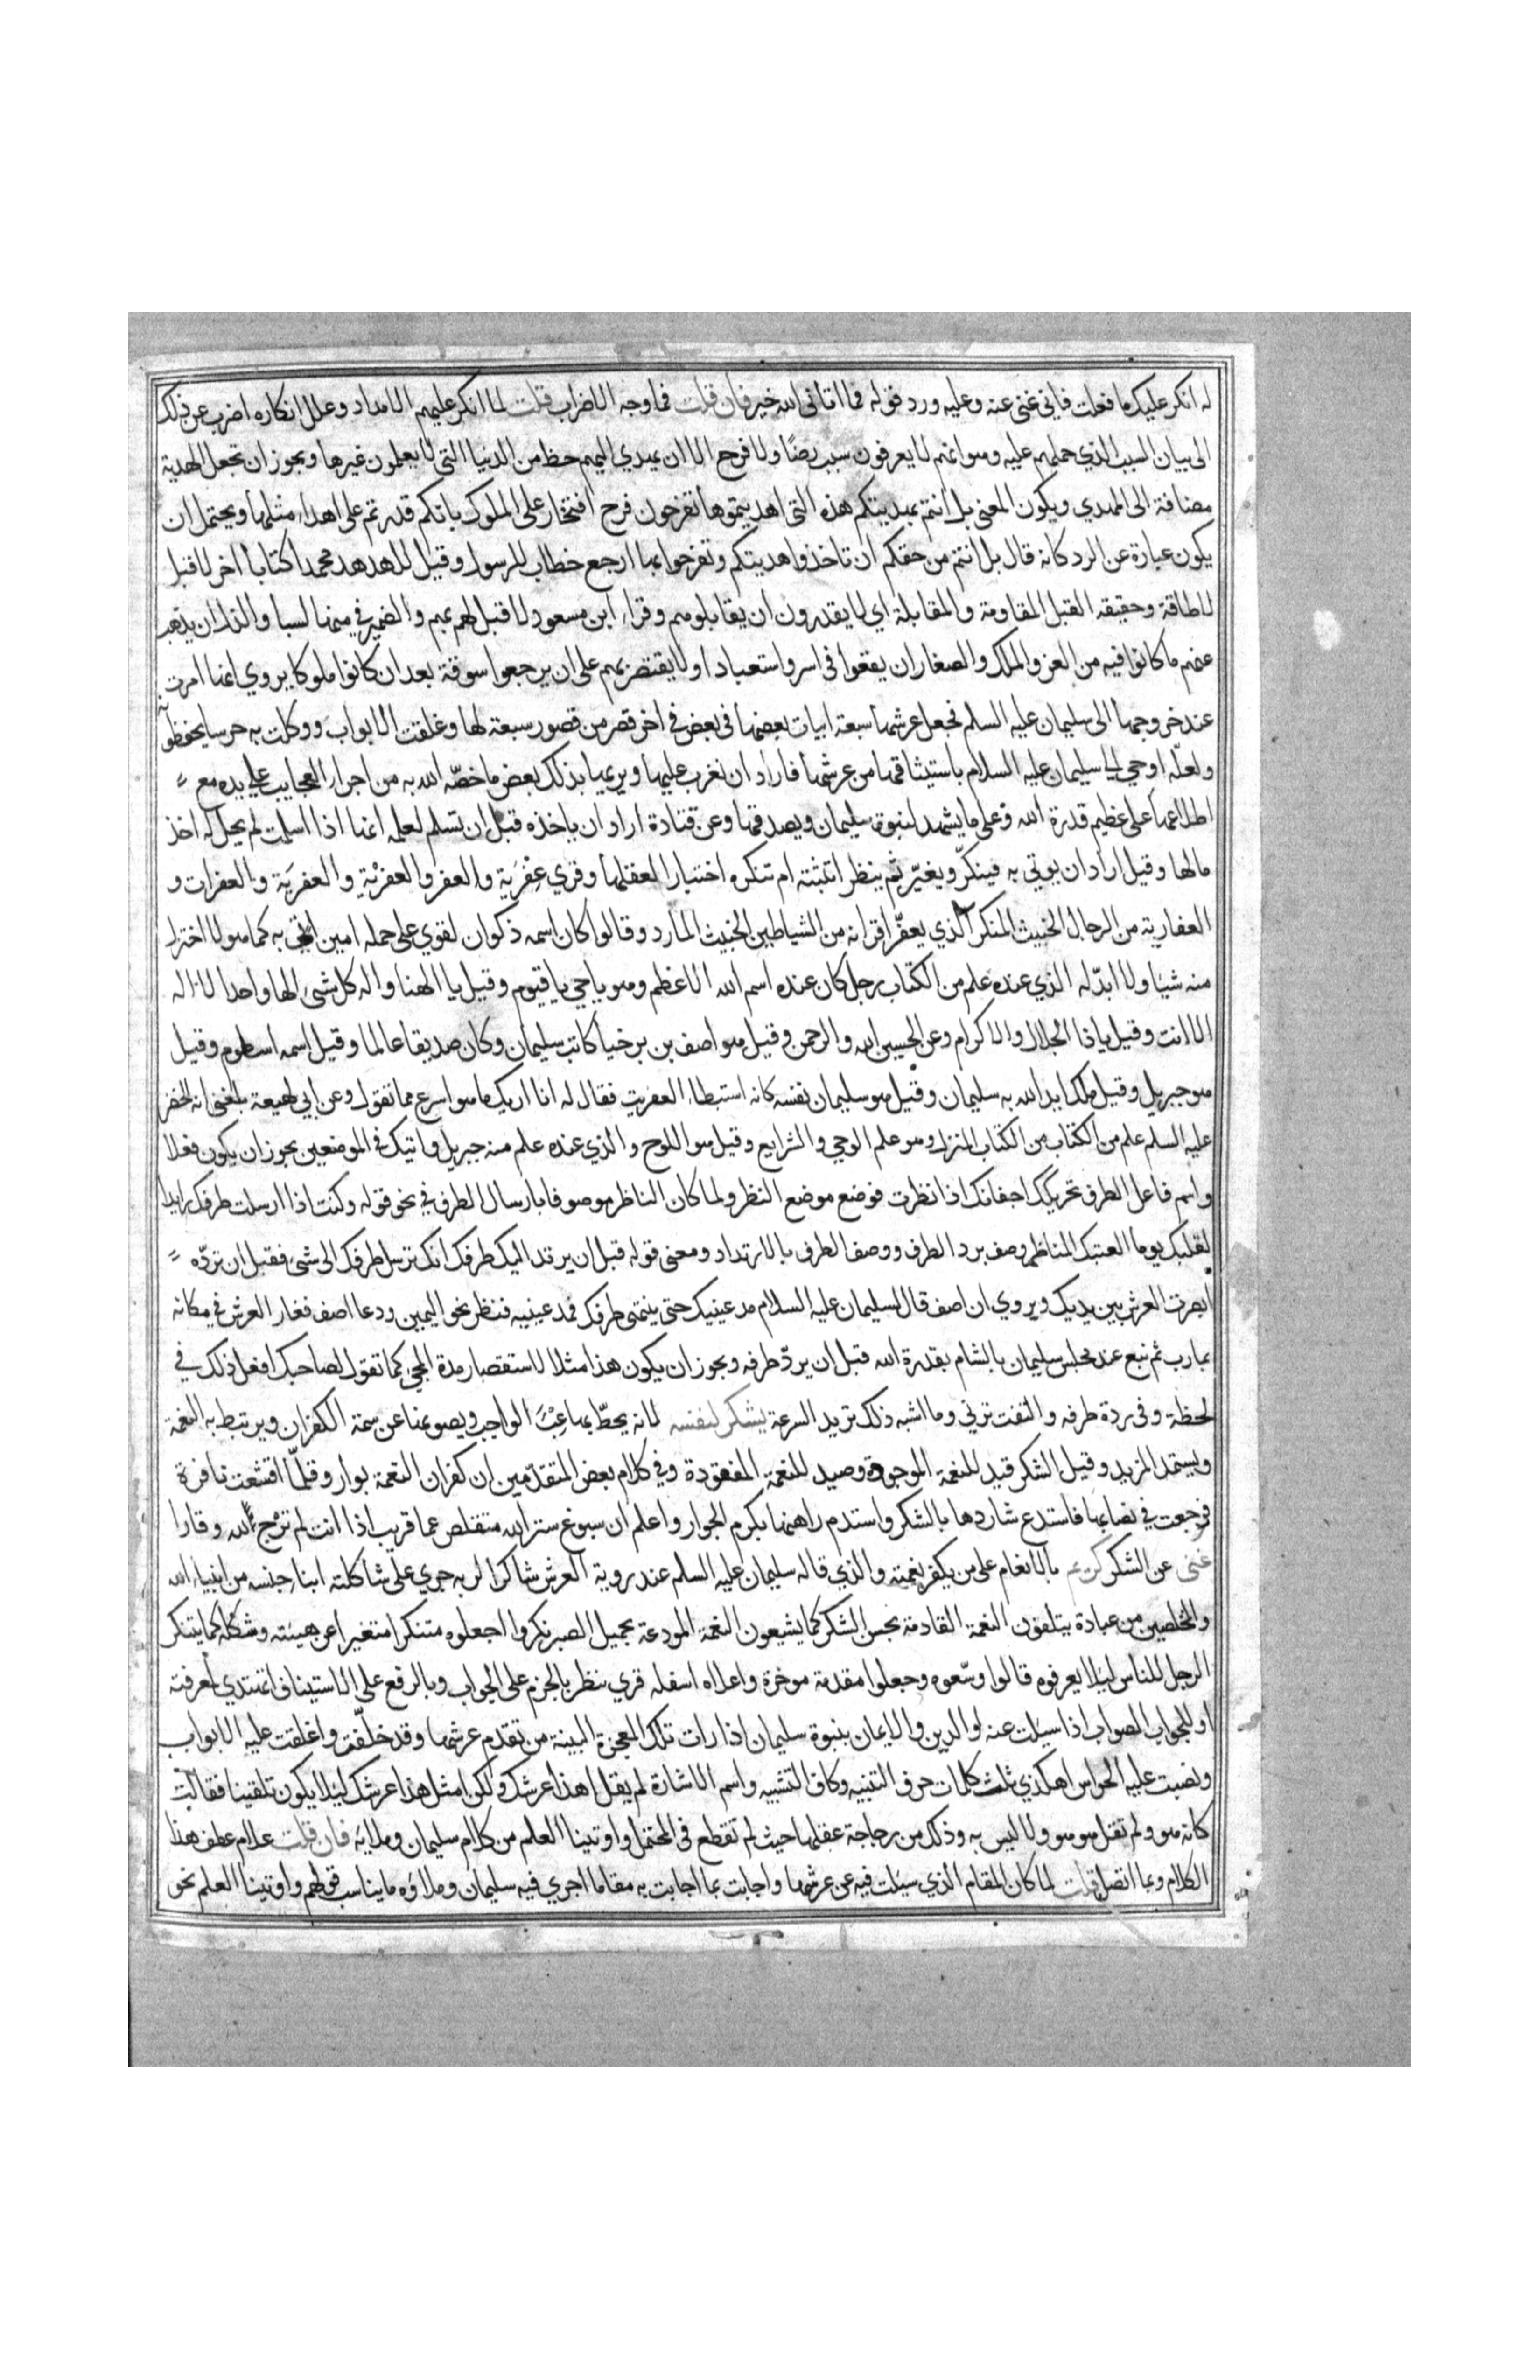 له انكر عليك ما فعلت فاني غني عنه وعليه ورد قوله فما اتاني الله خير فان قلت فما وجه الاضراب قلت لما انكر عليهم الامداد وعلل انكاره اضرب عن ذلك
الى بيان السبب الذي حملهم عليه وهو انهم لا يعرفون سبب رضًا ولا فرح الا ان يهدي اليهم حظ من الدنيا التي لا يعلمون غيرها ويجوز ان تجعل الهدية
مضافة الى المهدي ويكون المعنى بل انتم بهديتكم هذه التي اهديتموها تفرحون فرح افتخار على الملوك بانكم قدرتم على اهداء مثلها ويحتمل ان
يكون عبارة عن الرد كانه قال بل انتم من حقكم ان تاخذوا هديتكم وتفرحوا بها ارجع خطاب للرسول وقيل للهدهد محمدا كتابا اخر لا قبل
لا طاقة وحقيقة القبل المقاومة والمقابلة اي لا يقدرون ان يقابلوهم وقراء ابن مسعود لا قبل لهم بهم والضمير في منها لسبا والذل ان يذهب
عنهم ما كانوا فيه من العز والملك والصغار ان يقعوا في اسر واستعباد او لا يقتصر بهم على ان يرجعوا سوقة بعد ان كانوا ملوكا يروي انها امرت
عند خروجها الى سليمان عليه السلم فجعل عرشها سبعة ابيات بعضها في بعض في اخر قصر من قصور سبعة لها وغلقت الابواب ووكلت به حرسا يحفظونه
ولعله اوحي الى سليمان عليه السلام باستيثاقها من عرشها فاراد ان يغرب عليها ويريها بذلك بعض ما خصّه الله به من اجراء العجايب على يده مع
اطلاعها على عظيم قدرة الله وعلى ما يشهد لنبوة سليمان ويصدقها وعن قتادة اراد ان ياخذه قبل ان تسلم لعلمه انها اذا اسلمت لم يحل له اخذ
مالها وقيل اراد ان يوتي به فينكّر ويغيّر ثم ينظر اتثبته ام تنكره اختبارا لعقلها وقري عِفْرِيَة والعفر والعفرْيَة والعفريَة والعفرات و
العفارية من الرجال الخبيث المنكر الذي يعفّر اقرانه من الشياطين الخبيث المارد وقالوا كان اسمه ذكوان لقوي على حمله امين اتي به كما هو لا اختزل
منه شيا ولا ابدّله الذي عنده علم من الكتاب رجل كان عنده اسم الله الاعظم وهو يا حي يا قيوم وقيل يا الهنا واله كل شئ الها واحدا لا اله
الا انت وقيل يا ذا الجلال والاكرام وعن الحسين الله والرحمن وقيل هو اصف بن برخيا كاتب سليمان وكان صديقا عالما وقيل اسمه اسطوم وقيل
هو جبريل وقيل ملك ايد الله به سليمان وقيل هو سليمان نفسه كانه استبطاء العفريت فقال له انا اريك ما هو اسرع مما تقول وعن ابي لهيعة بلغني انه الخضر
عليه السلم علم من الكتاب من الكتاب المنزل وهو علم الوحي والشرايع وقيل هو اللوح والذي عنده علم منه جبريل واتيك في الموضعين يجوز ان يكون فعلا
واسم فاعل الطرف تحريكك اجفانك اذا نظرت فوضع موضع النظر ولما كان الناظر موصوفا بارسال الطرف في نحو قوله وكنت اذا ارسلت طرفك رايدا
لقلبك يوما اتعبتك المناظر وصف برد الطرف ووصف الطرف بالارتداد ومعنى قوله قبل ان يرتد اليك طرفك انك ترسل طرفك الى شئ فقبل ان تردّه
ابصرت العرش بين يديك ويروي ان اصف قال لسليمان عليه السلام مد عينيك حتى ينتهي طرفك فمد عينيه فنظر نحو اليمين ودعا اصف فغار العرش في مكانه
بمارب ثم نبع عند مجلس سليمان بالشام بقدرة الله قبل ان يردّ طرفه ويجوز ان يكون هذا مثلا لاستقصار مدة المجئ كما تقول لصاحبك افعل ذلك في
لحظة وفي ردة طرفه والتفت ترني وما اشبه ذلك تريد السرعة يشكر لنفسه لانه يحطّ بها عبْءَ الواجب ويصونها عن سمة الكفران ويرتبط به النعمة
ويستمد المزيد وقيل الشكر قيد للنعمة الموجودة وصيد للنعمة المفقودة وفي كلام بعض المتقدّمين ان كفران النعمة بوار وقلّما اقشعت نافرة
فرجعت في نصابها فاستدع شاردها بالشكر واستدم راهنها بكرم الجوار واعلم ان سبوغ ستر الله متقلص عما قريب اذا انت لم ترْج لله وقارا
غني عن الشكر كريم بالانعام على من يكفر نعمته والذي قاله سليمان عليه السلم عند روية العرش شاكرا لربه جري على شاكلته ابناء جنسه من انبياء الله
والمخلصين من عباده يتلقون النعمة القادمة بحسن الشكر كما يشيعون النعمة المودعة بجميل الصبر نكروا اجعلوه متنكرا متغيرا عن هيئته وشكله كما يتنكر
الرجل للناس ليلا يعرفوه قالوا وسّعوه وجعلوا مقدمه موخره واعلاه اسفله قري ننظر بالجزم على الجواب وبالرفع على الاستيناف اتهتدي لمعرفته
او للجواب الصواب اذا سيلت عنه او للدين والايمان بنبوة سليمان اذا رات تلك المعجزة البينة من تقدم عرشها وقد خلّفته واغلقت عليه الابواب
ونصبت عليه الحراس اهكذي ثلث كلمات حرف التنبيه وكاف التشبيه واسم الاشارة لم يقل اهذا عرشك ولكن امثل هذا عرشك ليلا يكون تلقينا فقالت
كانه هو ولم تقل هو هو ولا ليس به وذلك من رجاحة عقلها حيث لم تقطع في المحتمل واوتينا العلم من كلام سليمان وملايه فان قلت علام عطف هذا
الكلام وبما اتصل قلت لما كان المقام الذي سيلت فيه عن عرشها واجابت بما اجابت به مقاما اجري فيه سليمان وملاؤه ما يناسب قولهم واوتينا العلم نحو